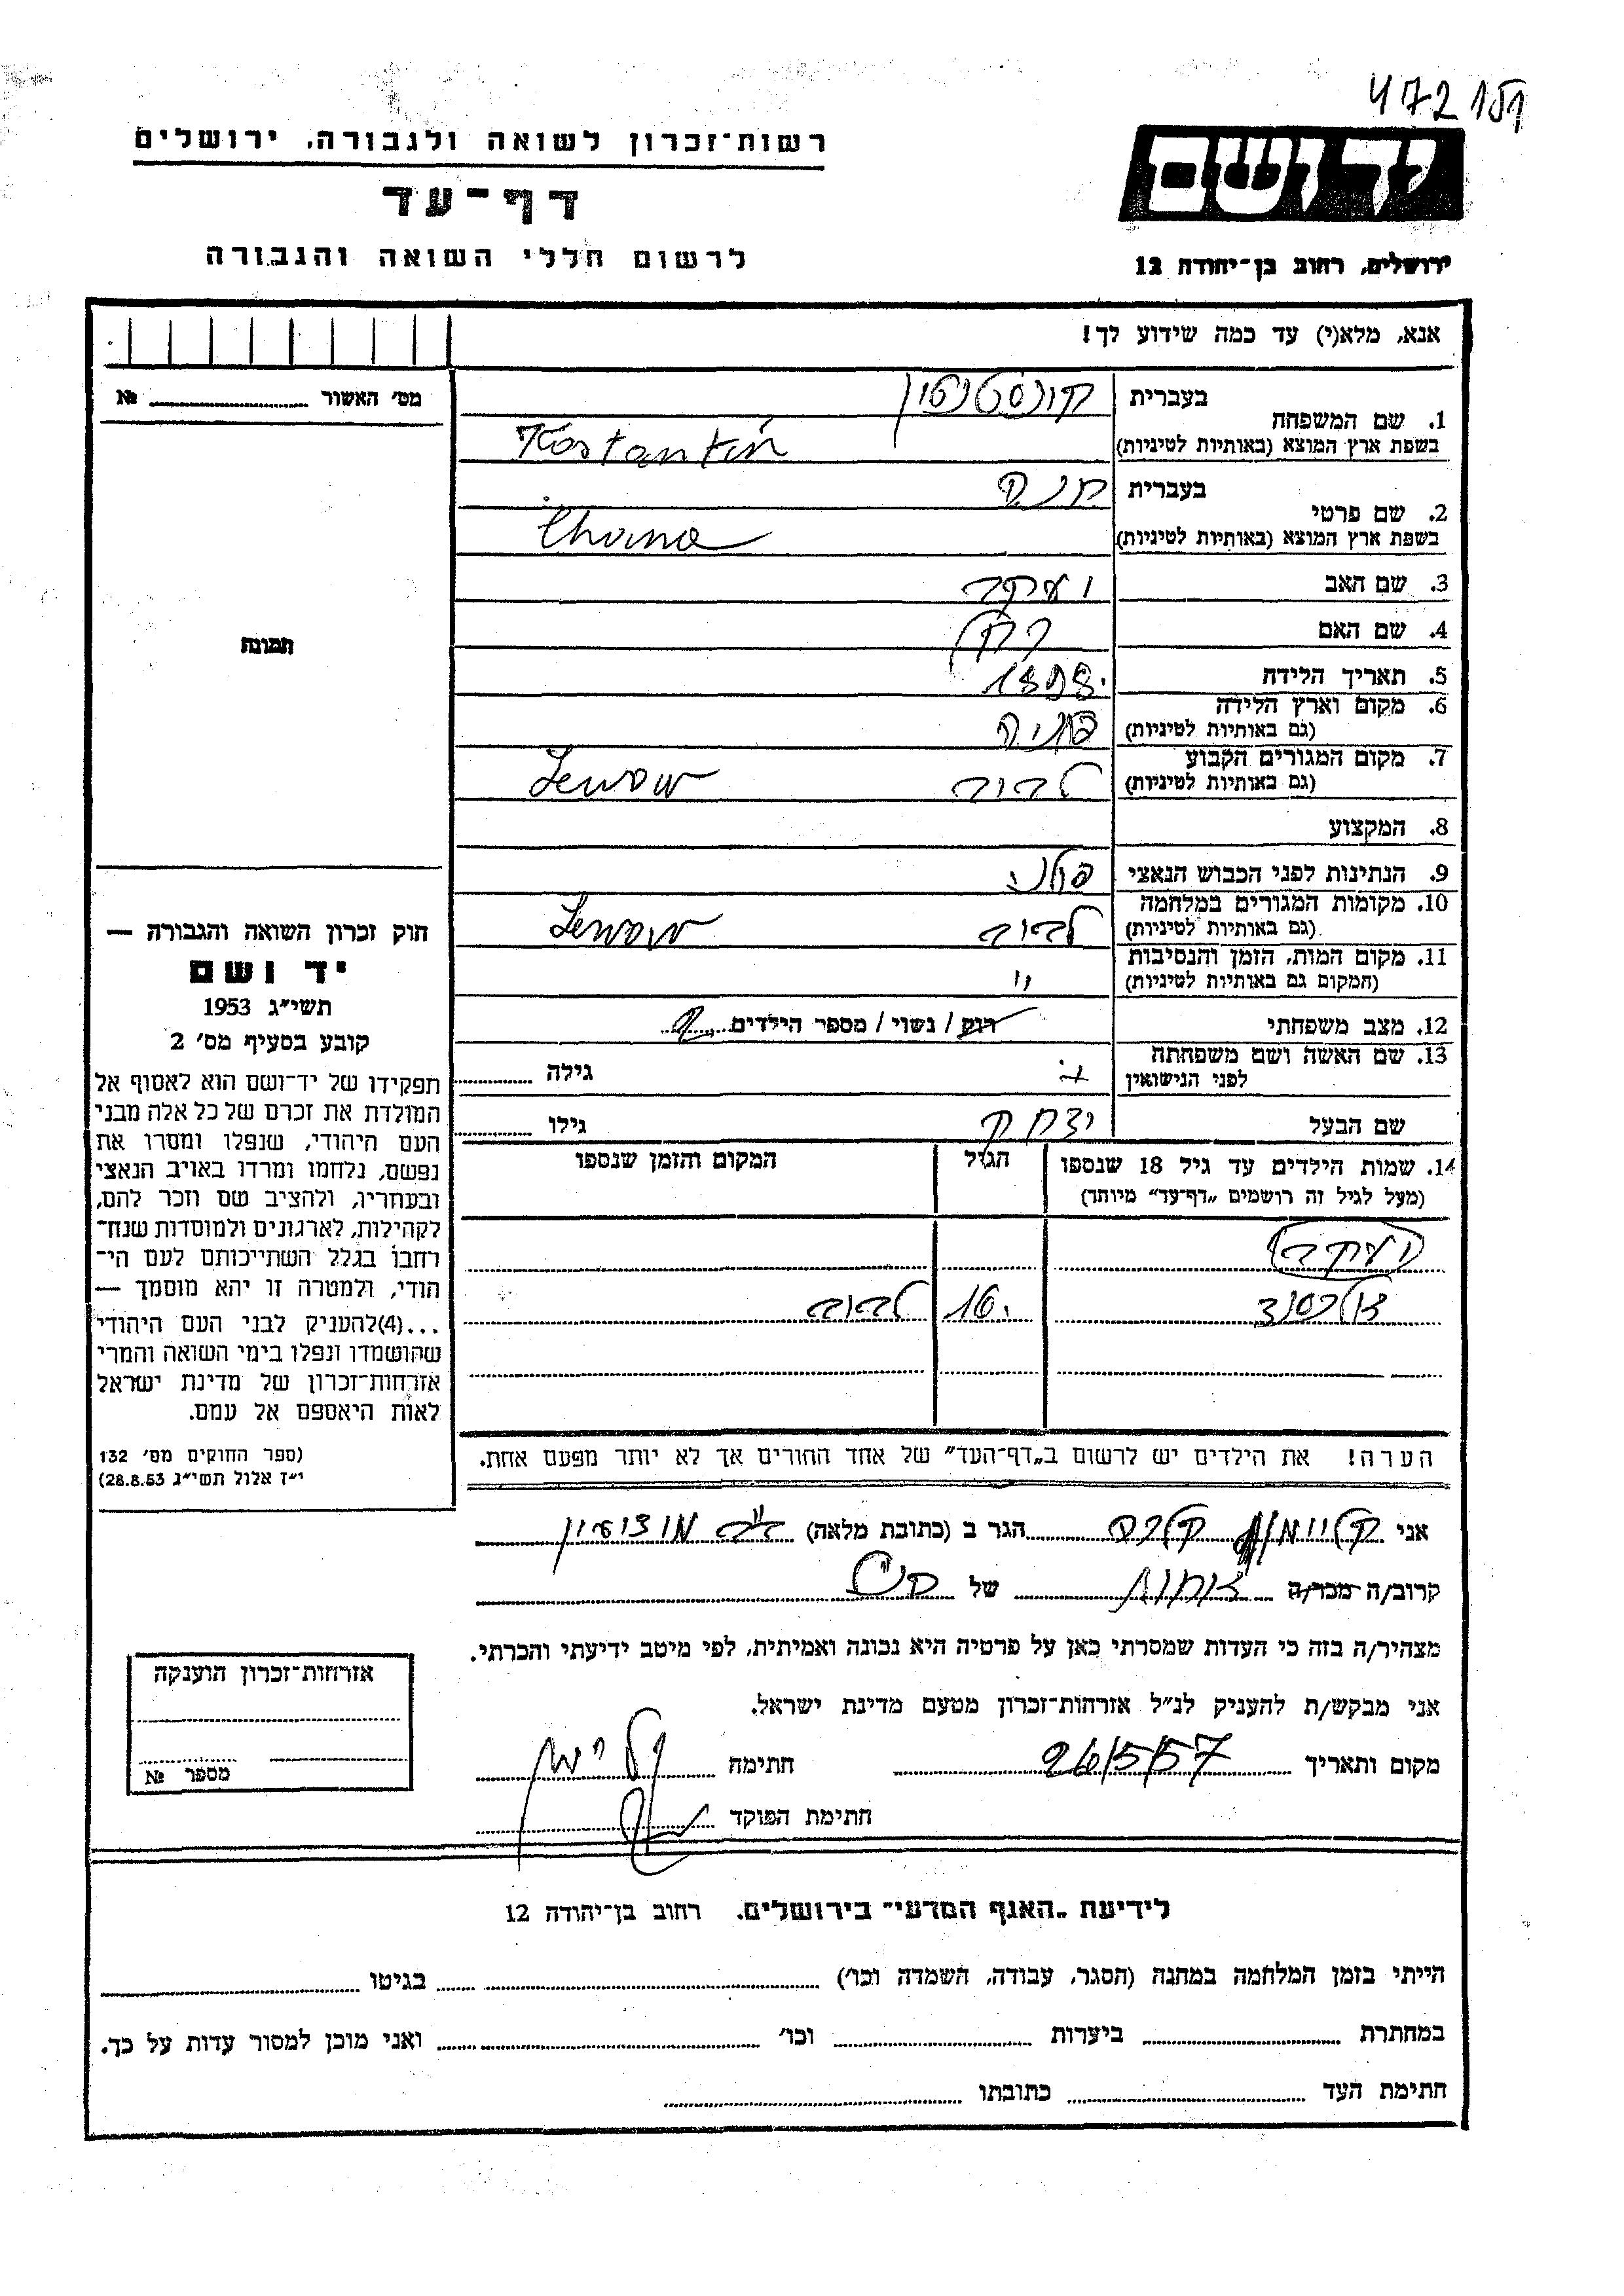 472151
רשות־זכרון לשואה ולגבורה, ירושלים
דף־עד
לרשום חללי השואה והגבורה
יד ושם
ירושלים, רחוב בן־יהודה 12
אנא, מלא(י) עד כמה שידוע לך!
מס׳ האשור № 
1. שם המשפחה
בעברית קונסטנטין
בשפת ארץ המוצא (באותיות לטיניות) Kostantin
2. שם פרטי
בעברית חנה
בשפת ארץ המוצא (באותיות לטיניות) Chana
3. שם האב יעקב
4. שם האם רחל
5. תאריך הלידה
6. מקום וארץ הלידה
(גם באותיות לטיניות)
7. מקום המגורים הקבוע לבוב Lewow
(גם באותיות לטיניות)
8. המקצוע
9. הנתינות לפני הכבוש הנאצי פולני
10. מקומות המגורים במלחמה לבוב Lewow
(גם באותיות לטיניות)
11. מקום המות, הזמן והנסיבות "
(המקום גם באותיות לטיניות)
12. מצב משפחתי רוק / נשוי / מספר הילדים
13. שם האשה ושם משפחתה
לפני הנישואין
גילה
שם הבעל יצחק גילו
14. שמות הילדים עד גיל 18 שנספו
(מעל לגיל זה רושמים „דף־עד” מיוחד)
הגיל
המקום והזמן שנספו
יעקב
16 לבוב
הערה! את הילדים יש לרשום ב„דף־העד” של אחד ההורים אך לא יותר מפעם אחת.
תמונה
חוק זכרון השואה והגבורה —
יד ושם
תשי״ג 1953
קובע בסעיף מס׳ 2
תפקידו של יד־ושם הוא לאסוף אל
המולדת את זכרם של כל אלה מבני
העם היהודי, שנפלו ומסרו את
נפשם, נלחמו ומרדו באויב הנאצי
ובעוזריו, ולהציב שם וזכר להם,
לקהילות, לארגונים ולמוסדות שנח־
רבו בגלל השתייכותם לעם הי־
הודי, ולמטרה זו יהא מוסמך —
...(4)להעניק לבני העם היהודי
שהושמדו ונפלו בימי השואה והמרי
אזרחות־זכרון של מדינת ישראל
לאות היאספם אל עמם.
(ספר החוקים מס׳ 132
י״ז אלול תשי״ג 28.8.53)
אני קליימן קלרה הגר ב (כתובת מלאה)
קרוב/ה מכר/ה אחות של הנ״ל
מצהיר/ה בזה כי העדות שמסרתי כאן על פרטיה היא נכונה ואמיתית, לפי מיטב ידיעתי והכרתי.
אני מבקש/ת להעניק לנ״ל אזרחות־זכרון מטעם מדינת ישראל.
מקום ותאריך 26/5/57 חתימה
חתימת הפוקד
אזרחות־זכרון הוענקה
מספר №
לידיעת „האגף המדעי” בירושלים, רחוב בן־יהודה 12
הייתי בזמן המלחמה במחנה (הסגר, עבודה, השמדה וכו׳) בגיטו
במחתרת ביערות וכו׳ ואני מוכן למסור עדות על כך.
חתימת העד כתובתו